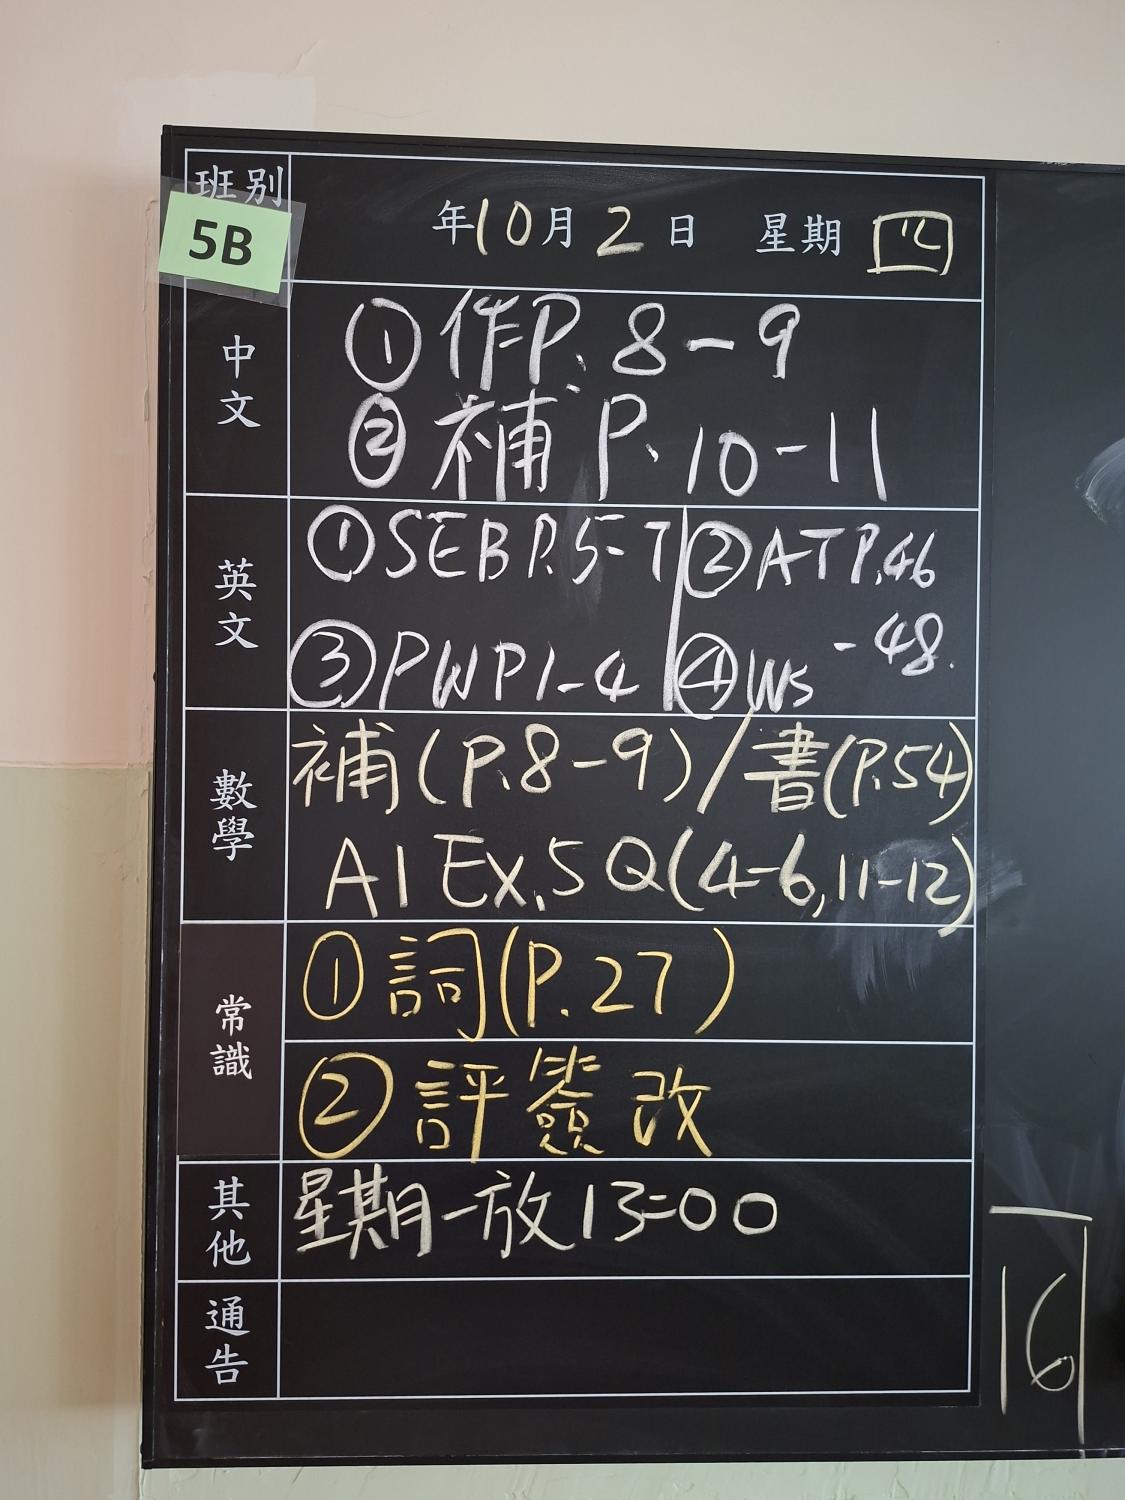 班別
5B
年10月2日 星期四
中文
①作P.8-9
②補P.10-11
英文
①SEB P.5-7 ②AT P.46
-48.
③PWP1-4 ④Ws
數學
補(P.8-9)/書(P.54)
A1 Ex.5 Q(4-6,11-12)
常識
①詞(P.27)
②評簽改
其他
星期一放13:00
通告
16